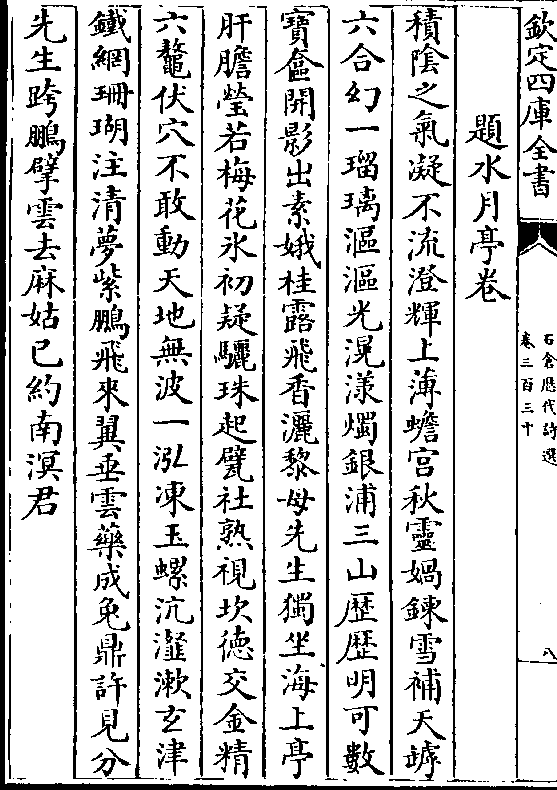 欽定四庫全書
石倉歷代詩選
卷三百三十
八
題水月亭卷
積陰之氣凝不流澄輝上薄蟾宮秋靈媧鍊雪補天罅
六合幻一瑠璃漚漚光滉漾燭銀浦三山歷歷明可數
寶奩開影出素娥桂露飛香灑黎母先生獨坐海上亭
肝膽瑩若梅花氷初疑驪珠起甓社熟視坎德交金精
六鼇伏穴不敢動天地無波一泓凍玉螺沆瀣漱玄津
鐵網珊瑚注清夢紫鵬飛來翼垂雲藥成兔鼎許見分
先生跨鵬擘雲去麻姑已約南溟君